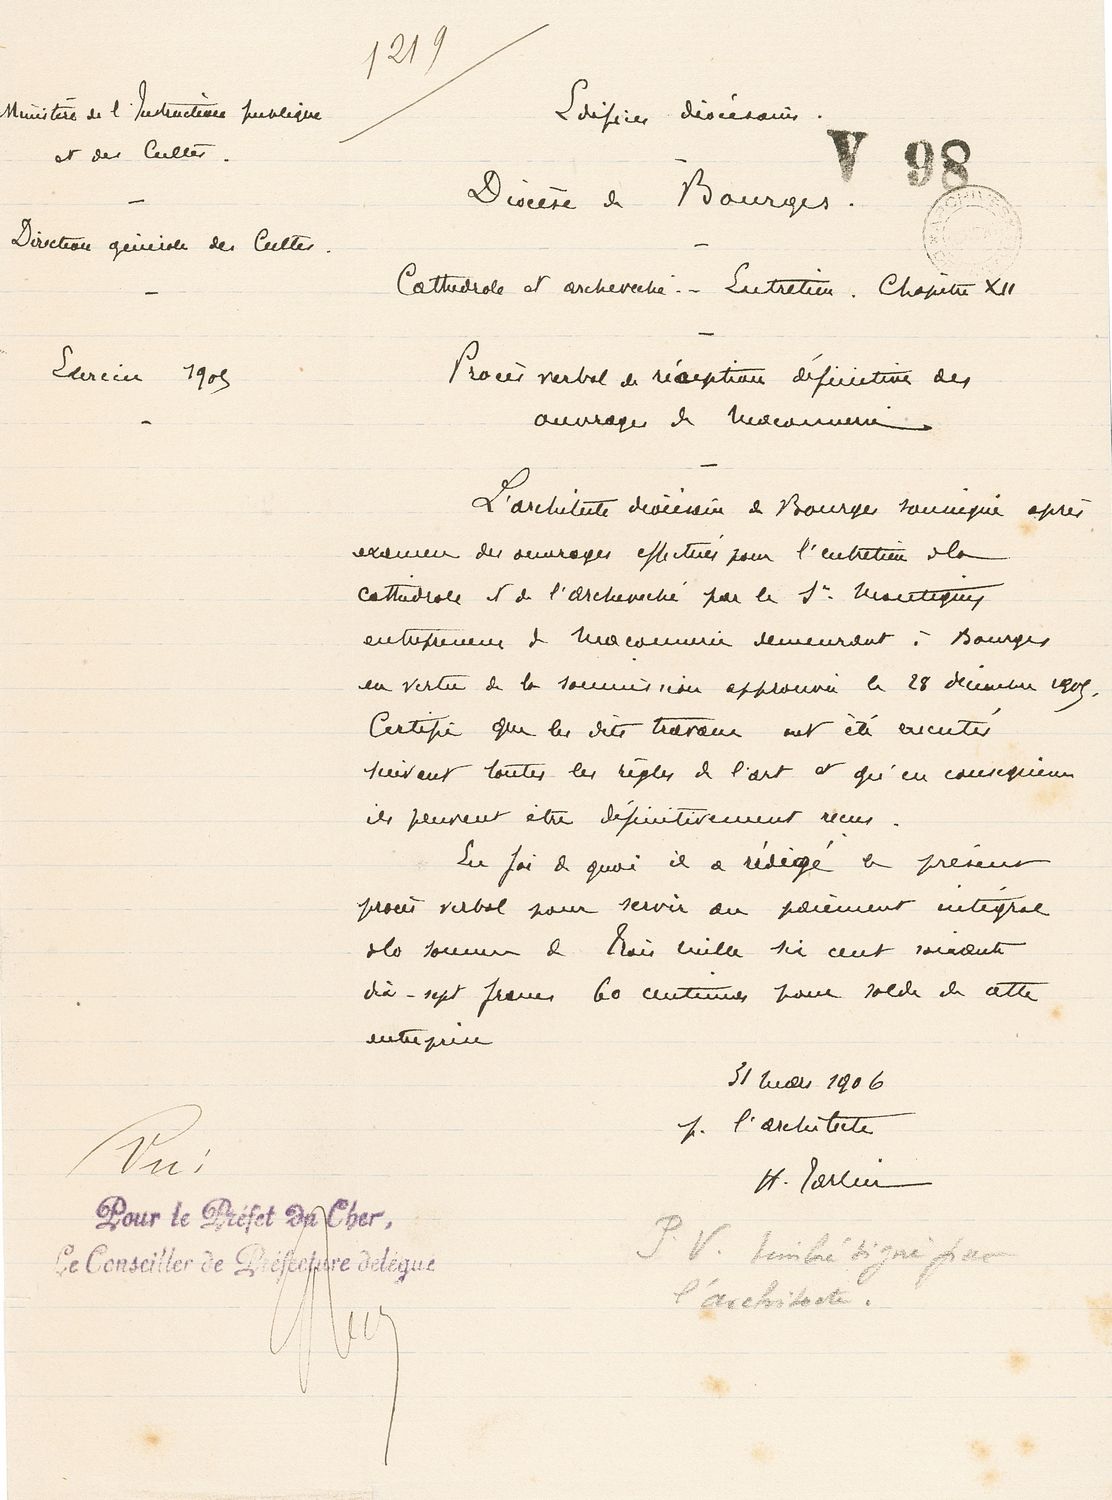 1219
Ministère de l'Instruction publique
et des Cultes.
Direction générale des Cultes.
Exercice 1905
Edifices diocésains.
V 98
Diocèse de Bourges.
Cathédrale et archevêché. - Entretien. Chapitre XII
Procès verbal de réception définitive des
ouvrages de maconnerie
L'architecte diocésain de Bourges soussigné après
examen des ouvrages effectués pour l'entretien de la
cathédrale et de l'archevêché par le Sr. Montigny
entrepreneur de maconnerie demeurant à Bourges
en vertu de la soumission approuvée le 28 décembre 1905.
Certifie que les dits travaux ont été executés
suivant toutes les règles de l'art et qu'en consequence
ils peuvent être définitivement reçus.
En foi de quoi il a rédigé le présent
procès verbal pour servir au paiement intégral
de la somme de trois mille six cent soixante
dix-sept francs 60 centimes pour solde de cette
entreprise
31 mars 1906
p. l'architecte
H. Tarlier
Vu:
Pour le Préfet du Cher,
Le Conseiller de Préfecture délégué
P. V. timbré signé par
l'architecte.